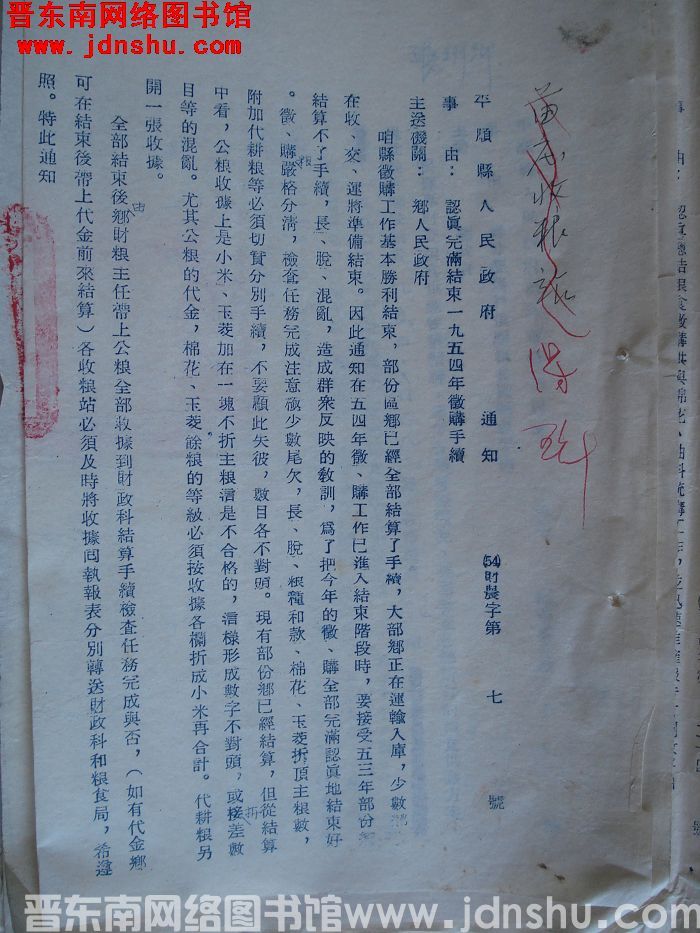 晋东南网络图书馆
www.jdnshu.com
平順縣人民政府 通知 (54)財農字第 七 號
事由：認眞完滿結束一九五四年徵購手續
主送機關：鄉人民政府
咱縣徵購工作基本勝利結束，部份區鄉已經全部結算了手續，大部鄉正在運輸入庫，少數
在收、交、運將準備結束。因此通知在五四年徵、購工作已進入結束階段時，要接受五三年部份
結算不了手續，長、脫、混亂，造成群衆反映的敎訓，爲了把今年的徵、購全部完滿認眞地結束好
。徵、購嚴格分淸，檢查任務完成注意極少數尾欠，長、脫、粮種和款、棉花、玉茭折頂主粮數，
附加代耕粮等必須切實分別手續，不要顧此矢彼，數目各不對頭。現有部份鄉已經結算，但從結算
中看，公粮收據上是小米、玉茭加在一塊不折主粮這是不合格的，這樣形成數字不對頭，或接差數
目等的混亂。尤其公粮的代金，棉花、玉茭餘粮的等級必須按收據各欄折成小米再合計。代耕粮另
開一張收據。
全部結束後鄉財粮主任帶上公粮全部收據到財政科結算手續檢查任務完成與否，（如有代金鄉
可在結束後帶上代金前來結算）各收粮站必須及時將收據囘執報表分別轉送財政科和粮食局，希遵
照。特此通知
晋东南网络图书馆 www.jdnshu.com